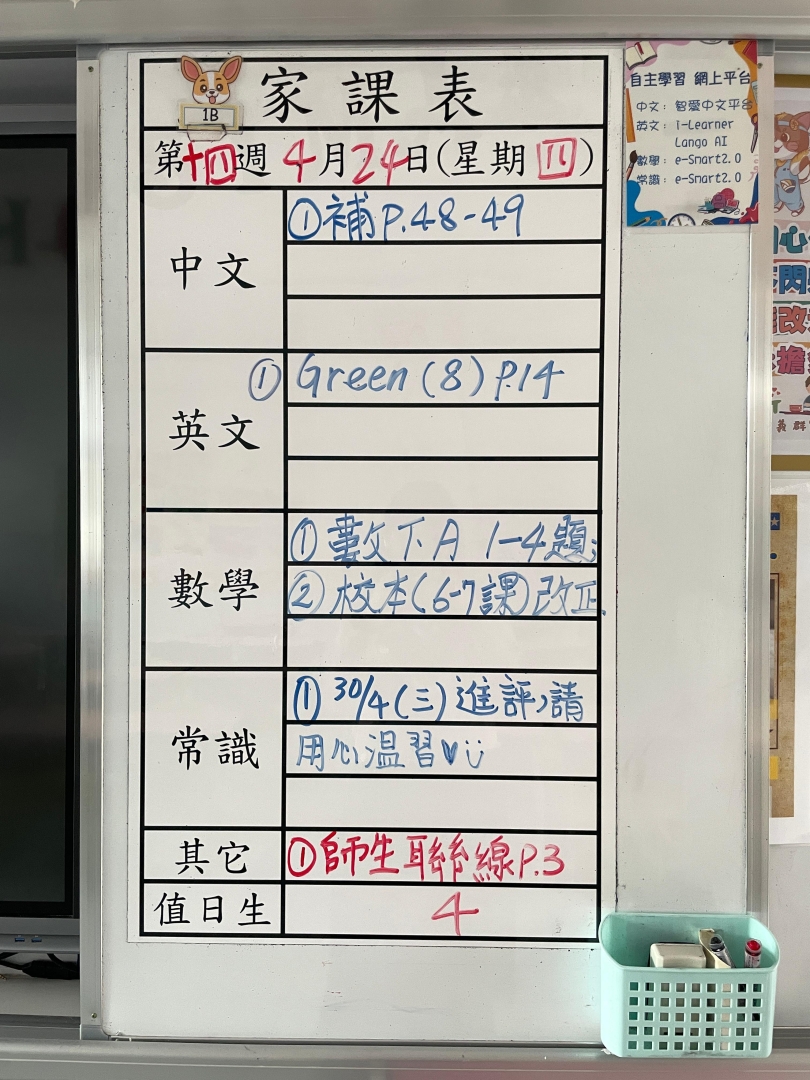 家課表
1B
第十四週 4月24日(星期四)
中文
①補P.48-49
英文
① Green (8) P.14
數學
① 數下A 1-4題;
② 校本(6-7課)改正
常識
① 30/4(三)進評,請
用心温習♥
其它
①師生聯絲線P.3
值日生
4
自主學習 網上平台
中文: 智愛中文平台
英文: i-Learner
Lango AI
數學: e-Smart2.0
常識: e-Smart2.0